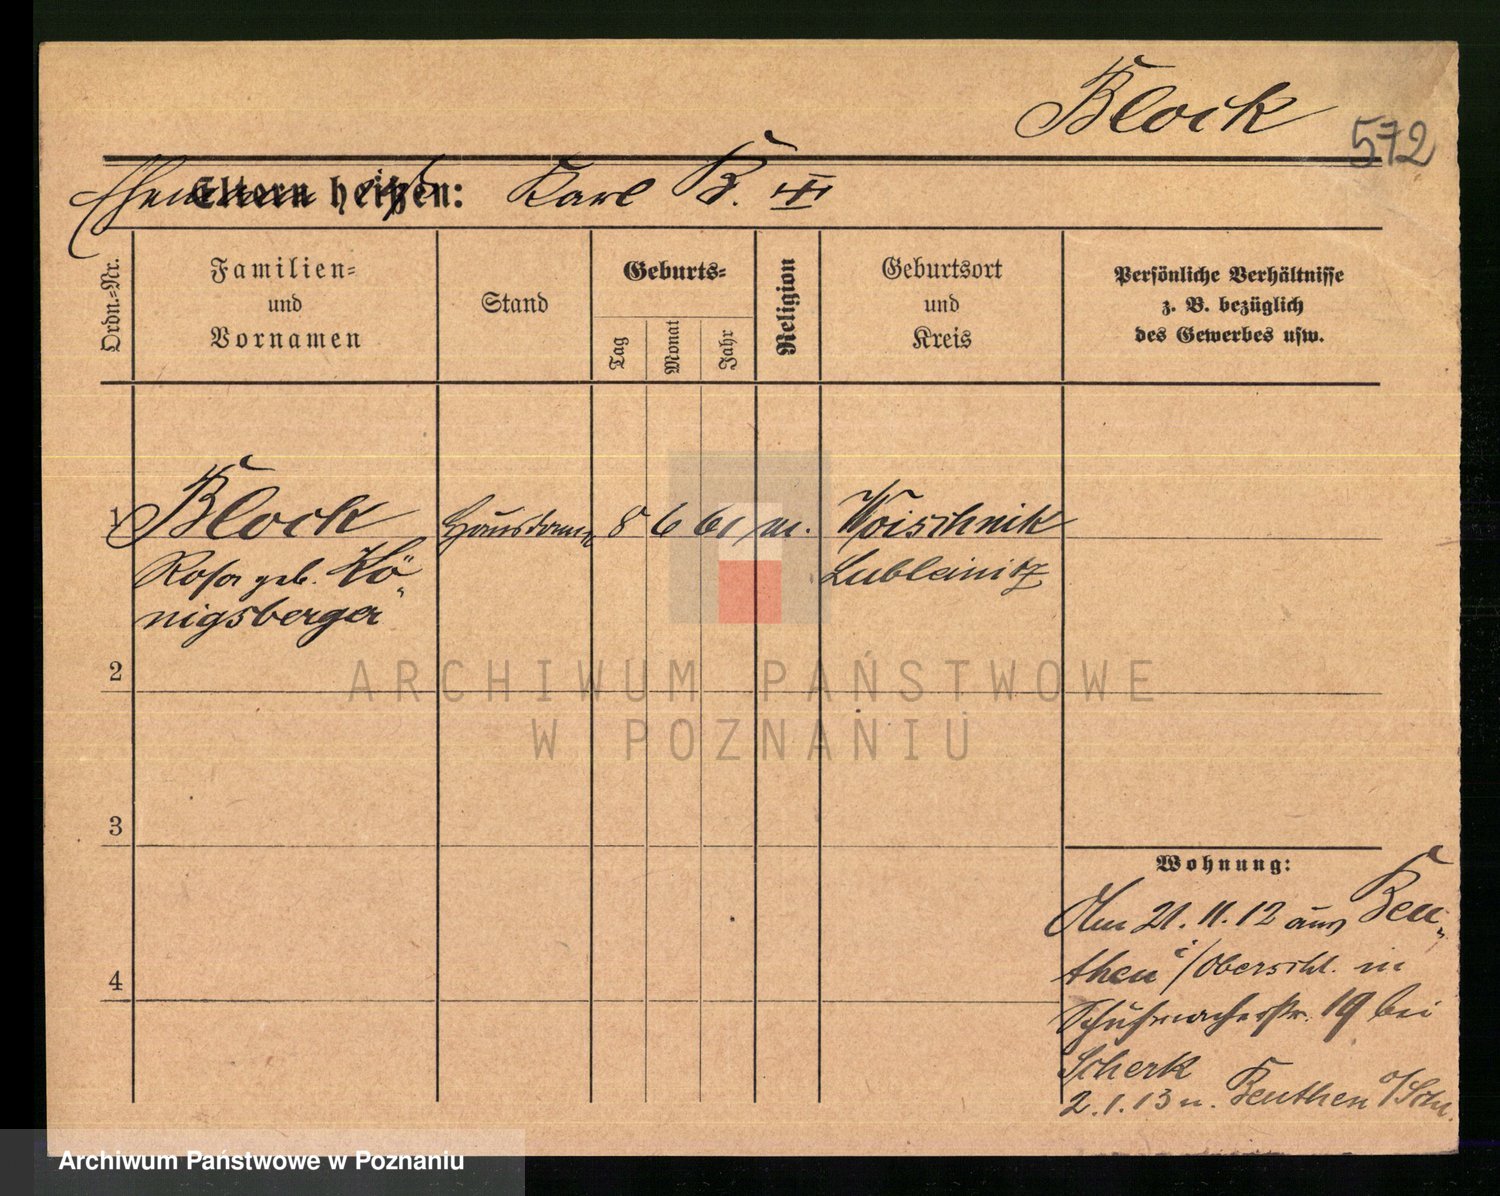 Block
572
Ehemann
Eltern heißen: Karl B. III
Ordn.=Nr.
Familien=
und
Vornamen
Stand
Geburts=
Tag
Monat
Jahr
Religion
Geburtsort
und
Kreis
Persönliche Verhältnisse
z. B. bezüglich
des Gewerbes usw.
1 Block 8 6 61 m. Woischnik
Rosa geb. Kö-
nigsberger
Lublinitz
2
3
4
Wohnung:
Am 21.11.12 aus Beu-
then /Oberschl. in
Schuhmacherstr. 19 bei
Scherk
2.1.13 n. Beuthen O/Schl.
ARCHIWUM PAŃSTWOWE
W POZNANIU
Archiwum Państwowe w Poznaniu